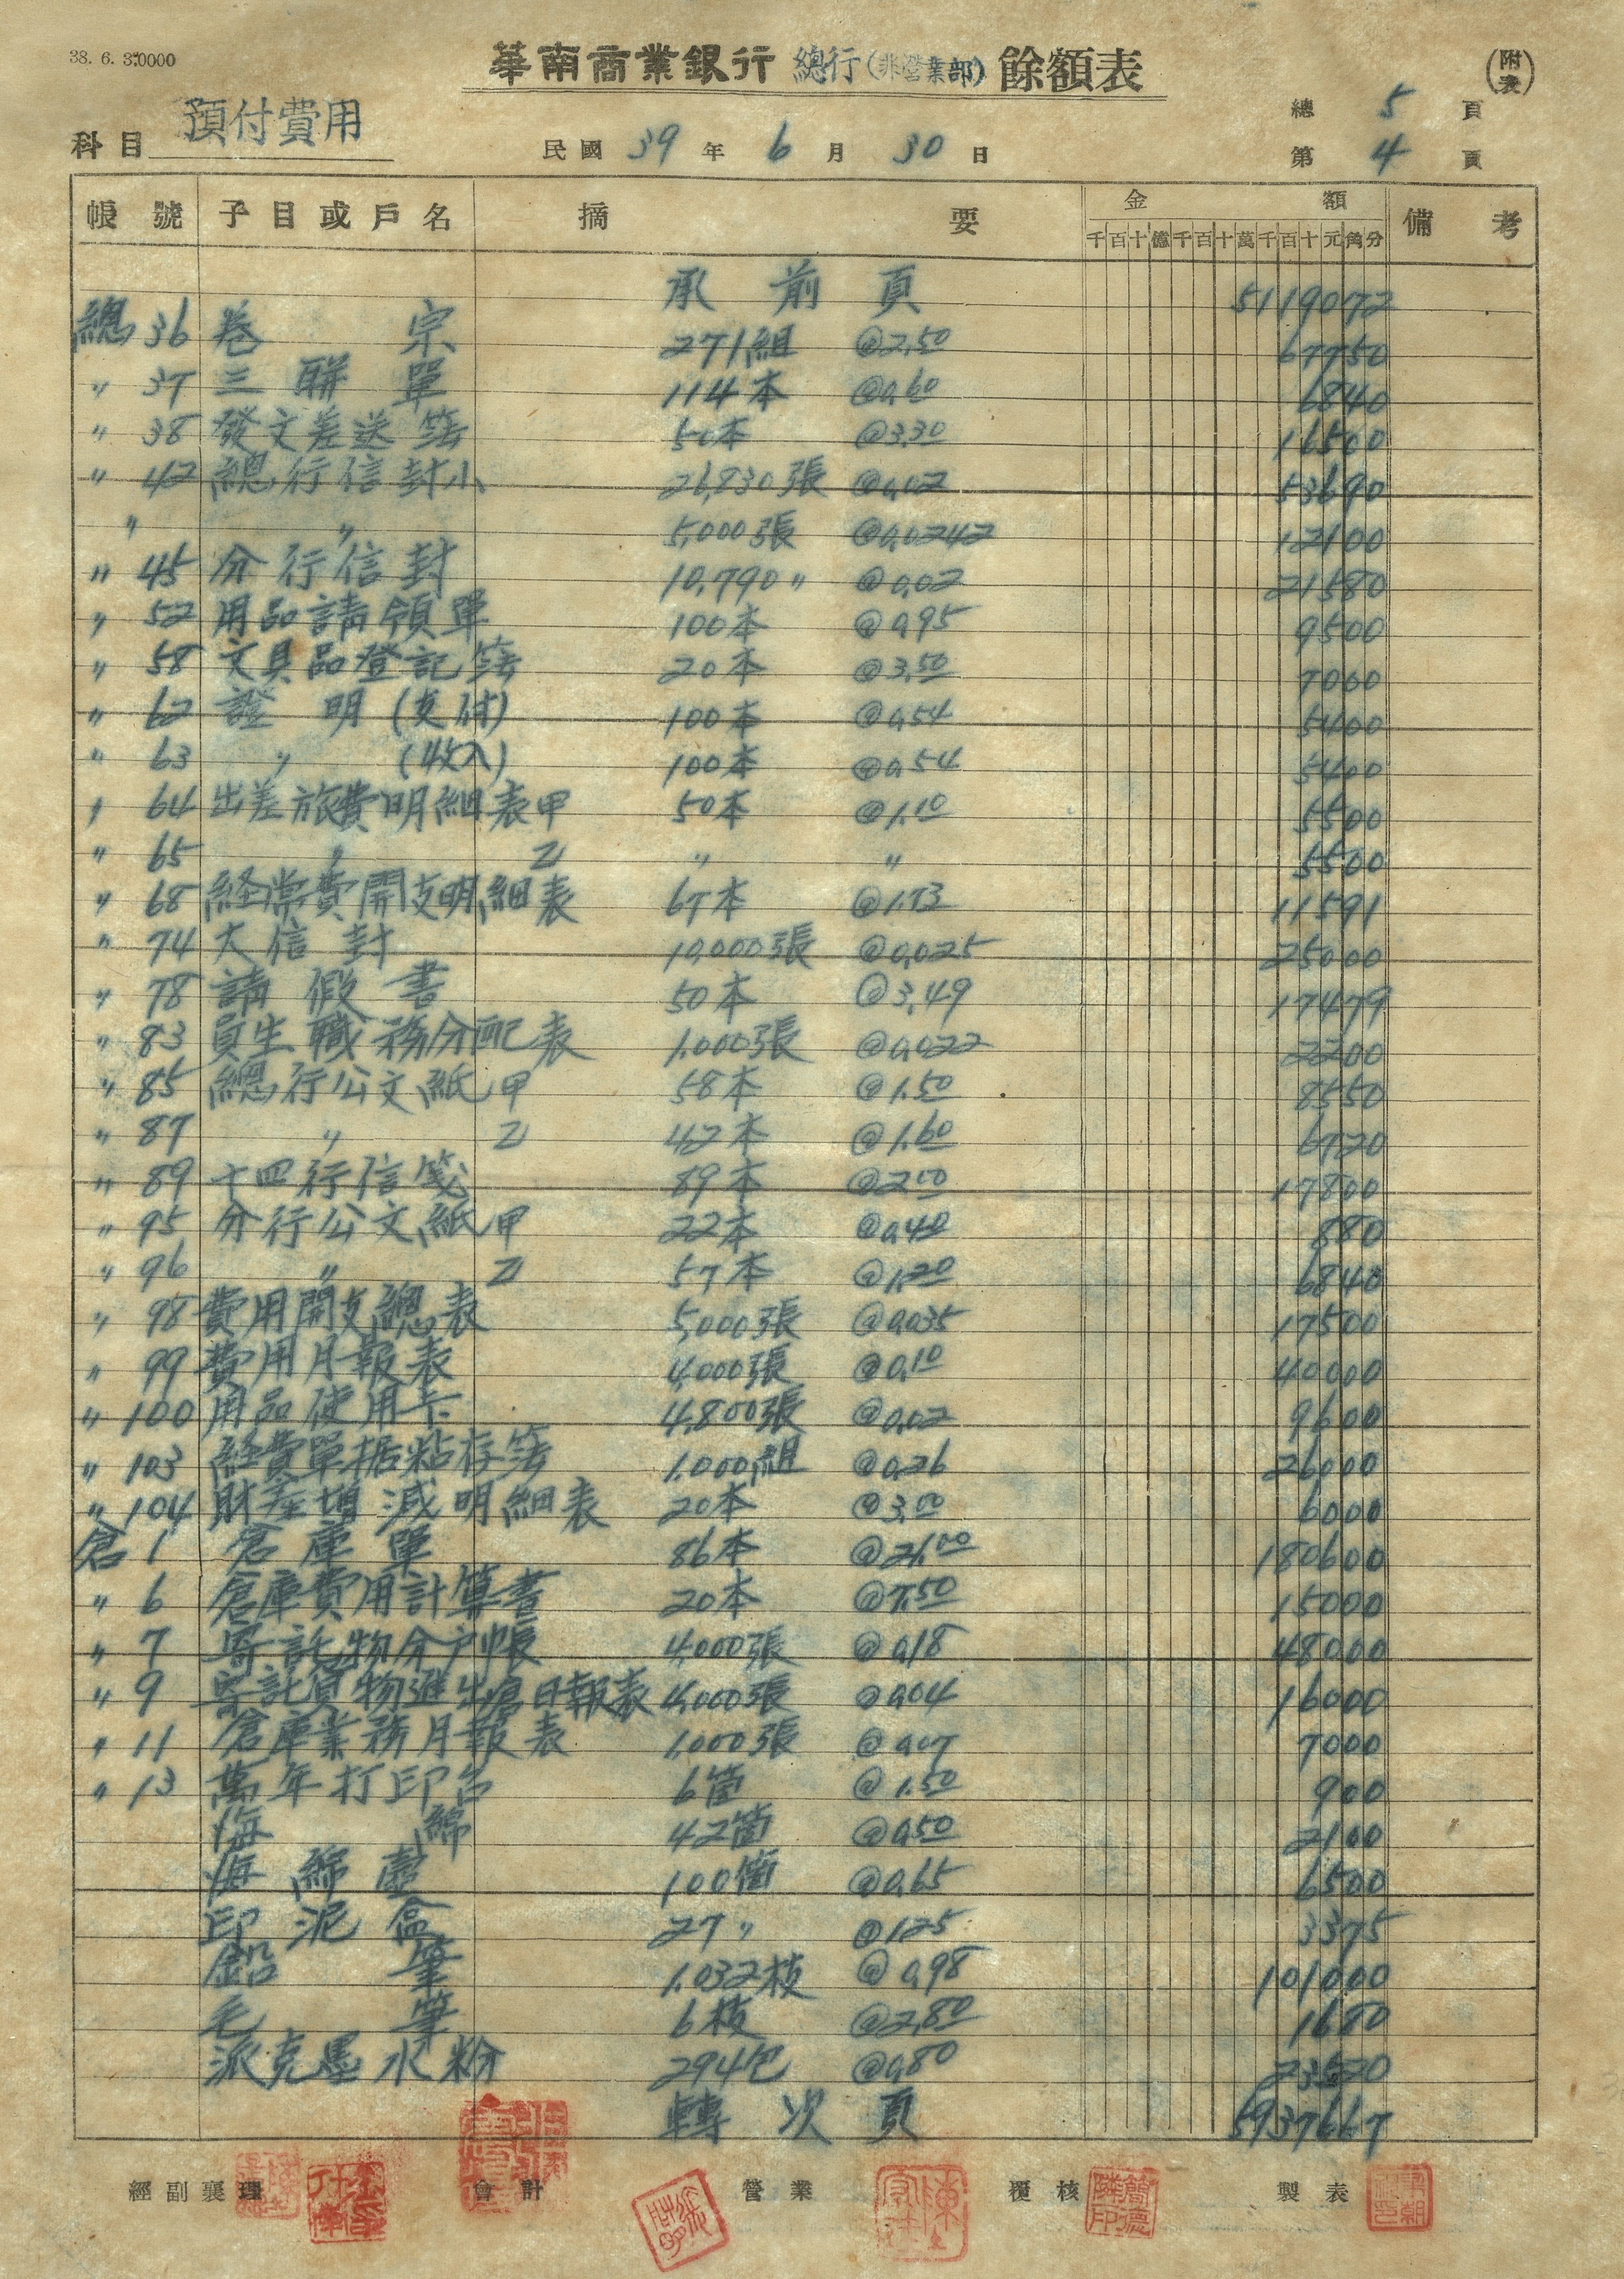 38. 6. 3.0000
華南商業銀行 總行(非營業部) 餘額表
(附表)
總 5 頁
科目 預付費用
民國 39 年 6 月 30 日
第 4 頁
帳號 子目或戶名 摘要 金額 備考
千百十億千百十萬千百十元角分
承前頁 5119072
總 36 卷宗 271組 @2.50 67750
〃 37 三聯單 114本 @0.60 6840
〃 38 發文差送簿 50本 @3.30 16500
〃 42 總行信封小 26,830張 @0.02 53690
〃 〃 5,000張 @0.0242 12100
〃 45 分行信封 10,790〃 @0.02 21580
〃 52 用品請領單 100本 @0.95 9500
〃 58 文具品登記簿 20本 @3.50 7000
〃 62 證明(支付) 100本 @0.54 5400
〃 63 〃 (收入) 100本 @0.54 5400
〃 64 出差旅費明細表甲 50本 @1.10 5500
〃 65 〃 乙 〃 〃 5500
〃 68 経常費開支明細表 67本 @1.73 11591
〃 74 大信封 10,000張 @0.025 25000
〃 78 請假書 50本 @3.49 17479
〃 83 員生職務分配表 1,000張 @0.022 2200
〃 85 總行公文紙甲 58本 @1.50 8550
〃 87 〃 乙 42本 @1.60 6720
〃 89 十四行信箋 89本 @2.00 17800
〃 95 分行公文紙甲 22本 @0.40 880
〃 96 〃 乙 57本 @1.20 6840
〃 98 費用開支總表 5,000張 @0.035 17500
〃 99 費用月報表 4,000張 @0.10 40000
〃 100 用品使用卡 4,800張 @0.02 9600
〃 103 経費單据粘存簿 1,000組 @0.26 26000
〃 104 財産増減明細表 20本 @3.00 6000
倉 1 倉庫單 86本 @21.00 180600
〃 6 倉庫費用計算書 20本 @7.50 15000
〃 7 寄託物分戶帳 4,000張 @0.18 48000
〃 9 寄託貨物進出倉日報表 4,000張 @0.04 16000
〃 11 倉庫業務月報表 1,000張 @0.07 7000
〃 13 萬年打印台 6箇 @1.50 900
海綿 42箇 @0.50 2100
海綿壺 100箇 @0.65 6500
印泥盒 27〃 @1.25 3375
鉛筆 1,032枝 @0.98 101000
毛筆 6枝 @2.80 1680
派克墨水粉 294包 @0.80 23520
轉次頁 5937667
經副襄理 會計 營業 覆核 製表
簡德隣印